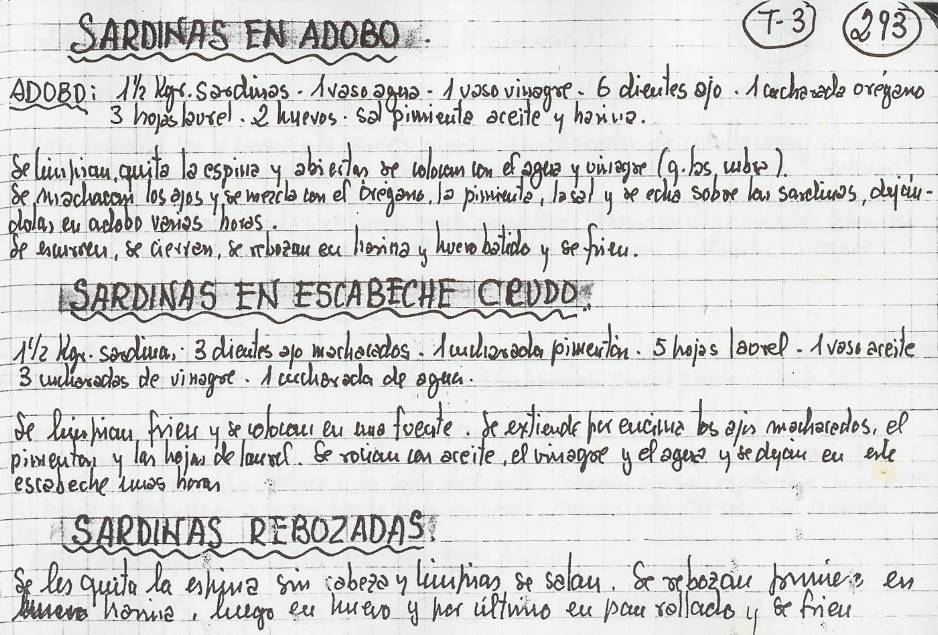 SARDINAS EN ADOBO.
T-3 293
ADOBO: 1½ Kgr. Sardinas - 1 vaso agua - 1 vaso vinagre - 6 dientes ajo - 1 cucharada orégano
3 hojas laurel - 2 huevos - sal pimienta aceite y harina.
Se limpian, quita la espina y abiertas se colocan con el agua y vinagre (q. las cubra).
Se machacan los ajos y se mezcla con el orégano, la pimienta, la sal y se echa sobre las sardinas, deján-
dolas en adobo varias horas.
Se escurren, se cierren, se rebozan en harina y huevo batido y se frien.
SARDINAS EN ESCABECHE CRUDO.
1½ Kgr. sardina, 3 dientes ajo machacados - 1 cucharada pimentón - 5 hojas laurel - 1 vaso aceite
3 cucharadas de vinagre - 1 cucharada de agua.
Se limpian, frien y se colocan en una fuente. Se extiende por encima los ajos machacados, el
pimenton y las hojas de laurel. Se rocian con aceite, el vinagre y el agua y se dejan en este
escabeche unas horas
SARDINAS REBOZADAS.
Se les quita la espina sin cabeza y limpias se salan. Se rebozan primero en
harina, luego en huevo y por último en pan rallado y se frien